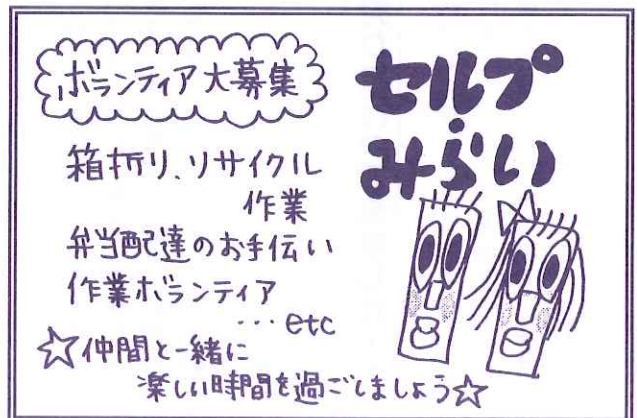 ボランティア大募集
セルプ
みらい
箱折り、リサイクル
作業
弁当配達のお手伝い
作業ボランティア
…etc
☆仲間と一緒に
楽しい時間を過ごしましょう☆